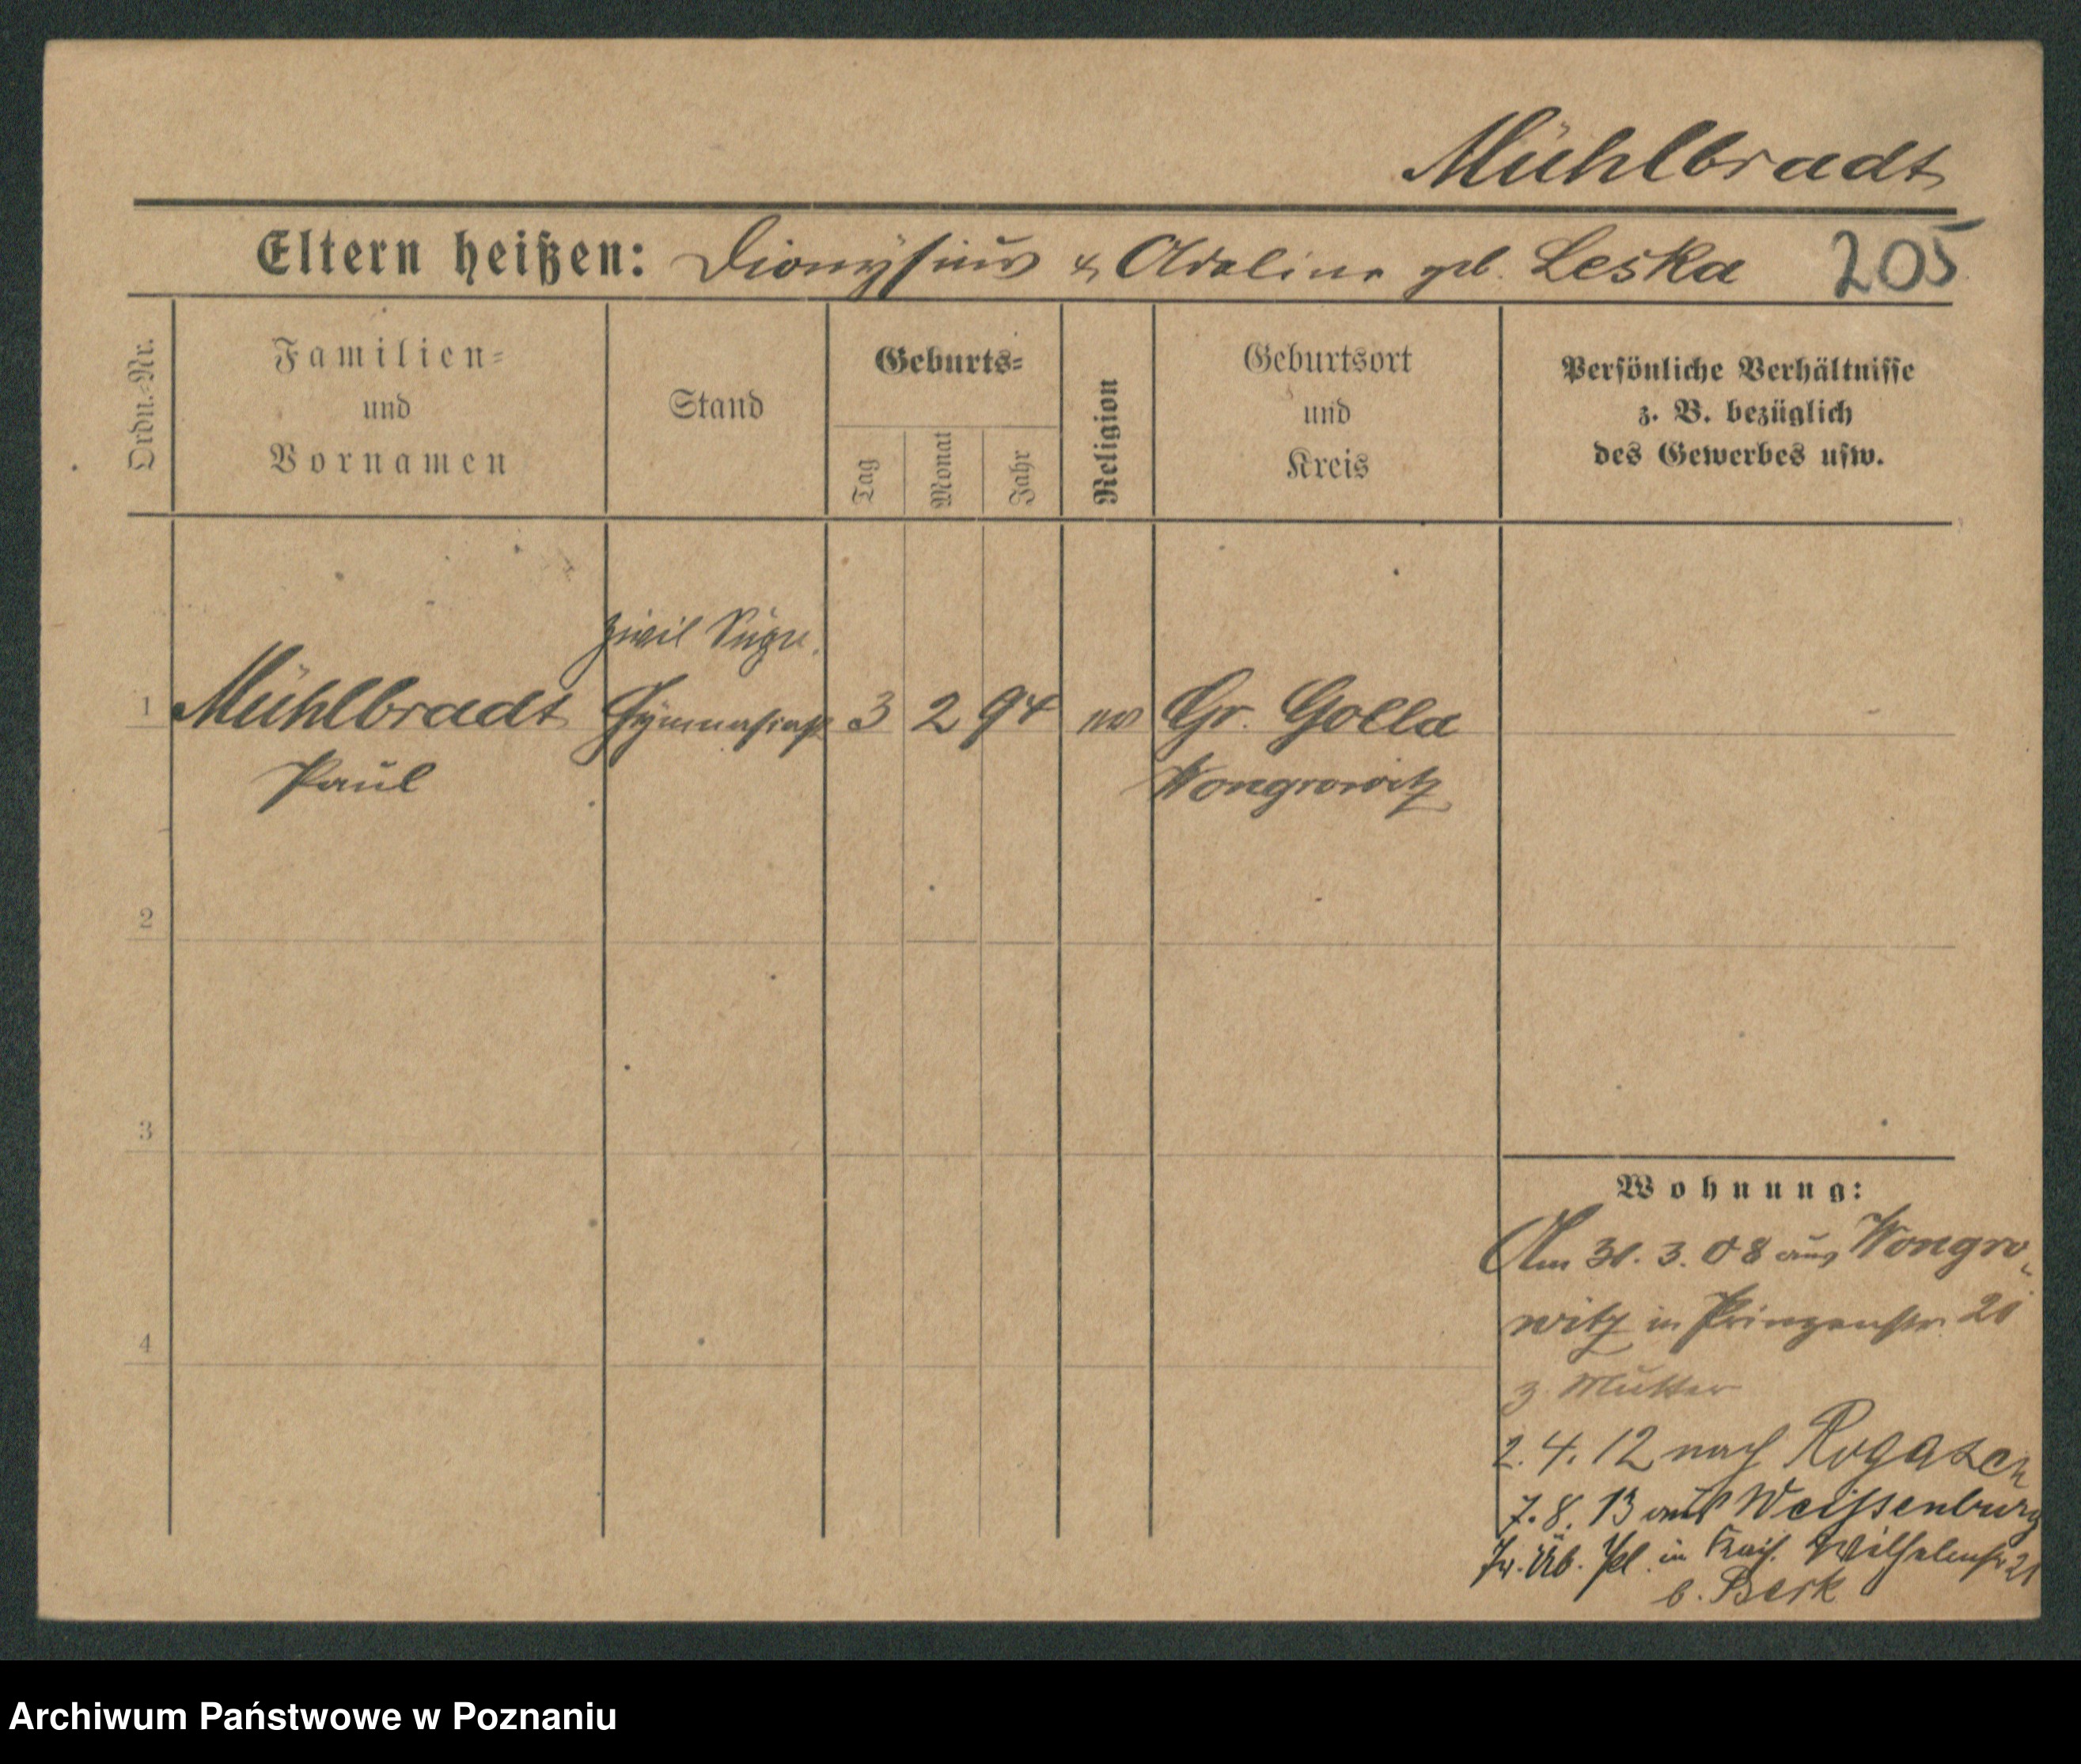 Mühlbradt
Eltern heißen: Dionysius & Adeline geb. Leska 205
Ordn.-Nr.
Familien-
und
Vornamen
Stand
Geburts-
Tag
Monat
Jahr
Religion
Geburtsort
und
Kreis
Persönliche Verhältnisse
z. B. bezüglich
des Gewerbes usw.
Zivil
1 Mühlbradt Gymnasiast 3 2 94 Gr. Golla
Paul Wongrowitz
2
3
4
Wohnung:
Am 31. 3. 08 aus Wongro-
witz in Prinzenstr. 21
z. Mutter
2. 4. 12 nach Rogasen
7. 8. 13 aus Weissenburg
in Kais. Wilhelmstr 21
b. Berk
Archiwum Państwowe w Poznaniu